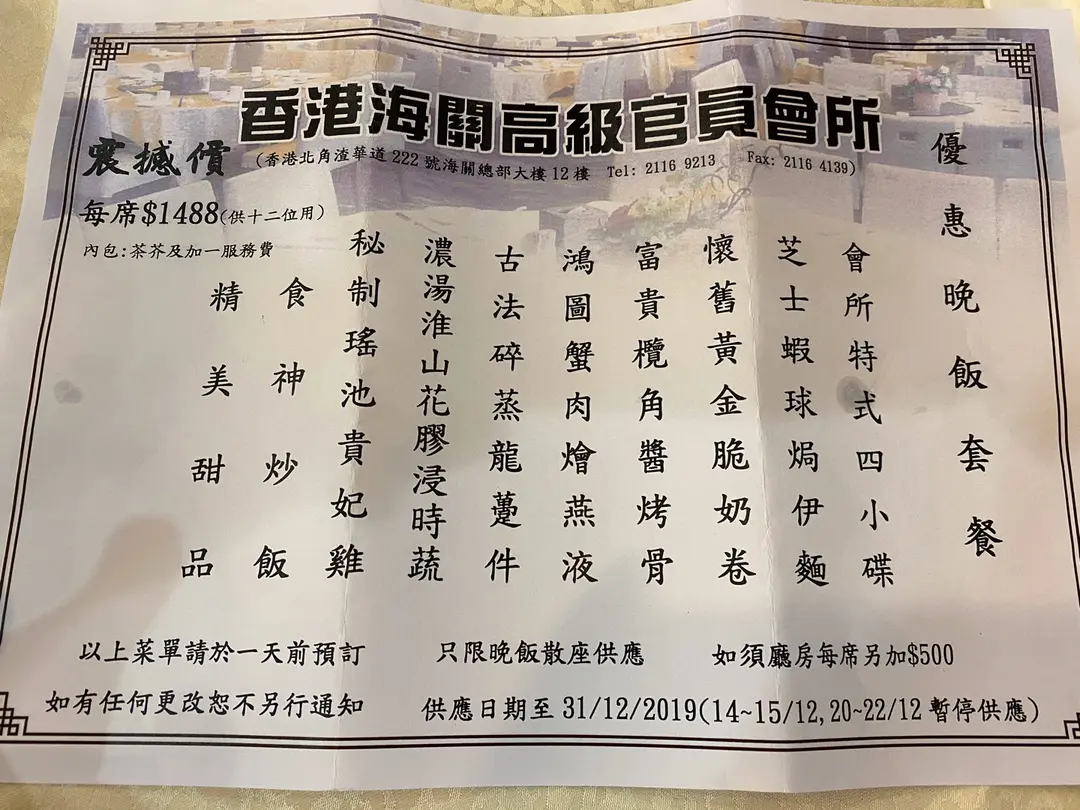 香港海關高級官員會所
(香港北角渣華道 222 號海關總部大樓 12 樓 Tel: 2116 9213 Fax: 2116 4139)
震撼價
每席$1488(供十二位用)
內包:茶芥及加一服務費
優惠晚飯套餐
會所特式四小碟
芝士蝦球焗伊麵
懷舊黃金脆奶卷
富貴欖角醬烤骨
鴻圖蟹肉燴燕液
古法碎蒸龍躉件
濃湯淮山花膠浸時蔬
秘制瑤池貴妃雞
食神炒飯
精美甜品
以上菜單請於一天前預訂
只限晚飯散座供應
如須廳房每席另加$500
如有任何更改恕不另行通知
供應日期至 31/12/2019(14~15/12, 20~22/12 暫停供應)